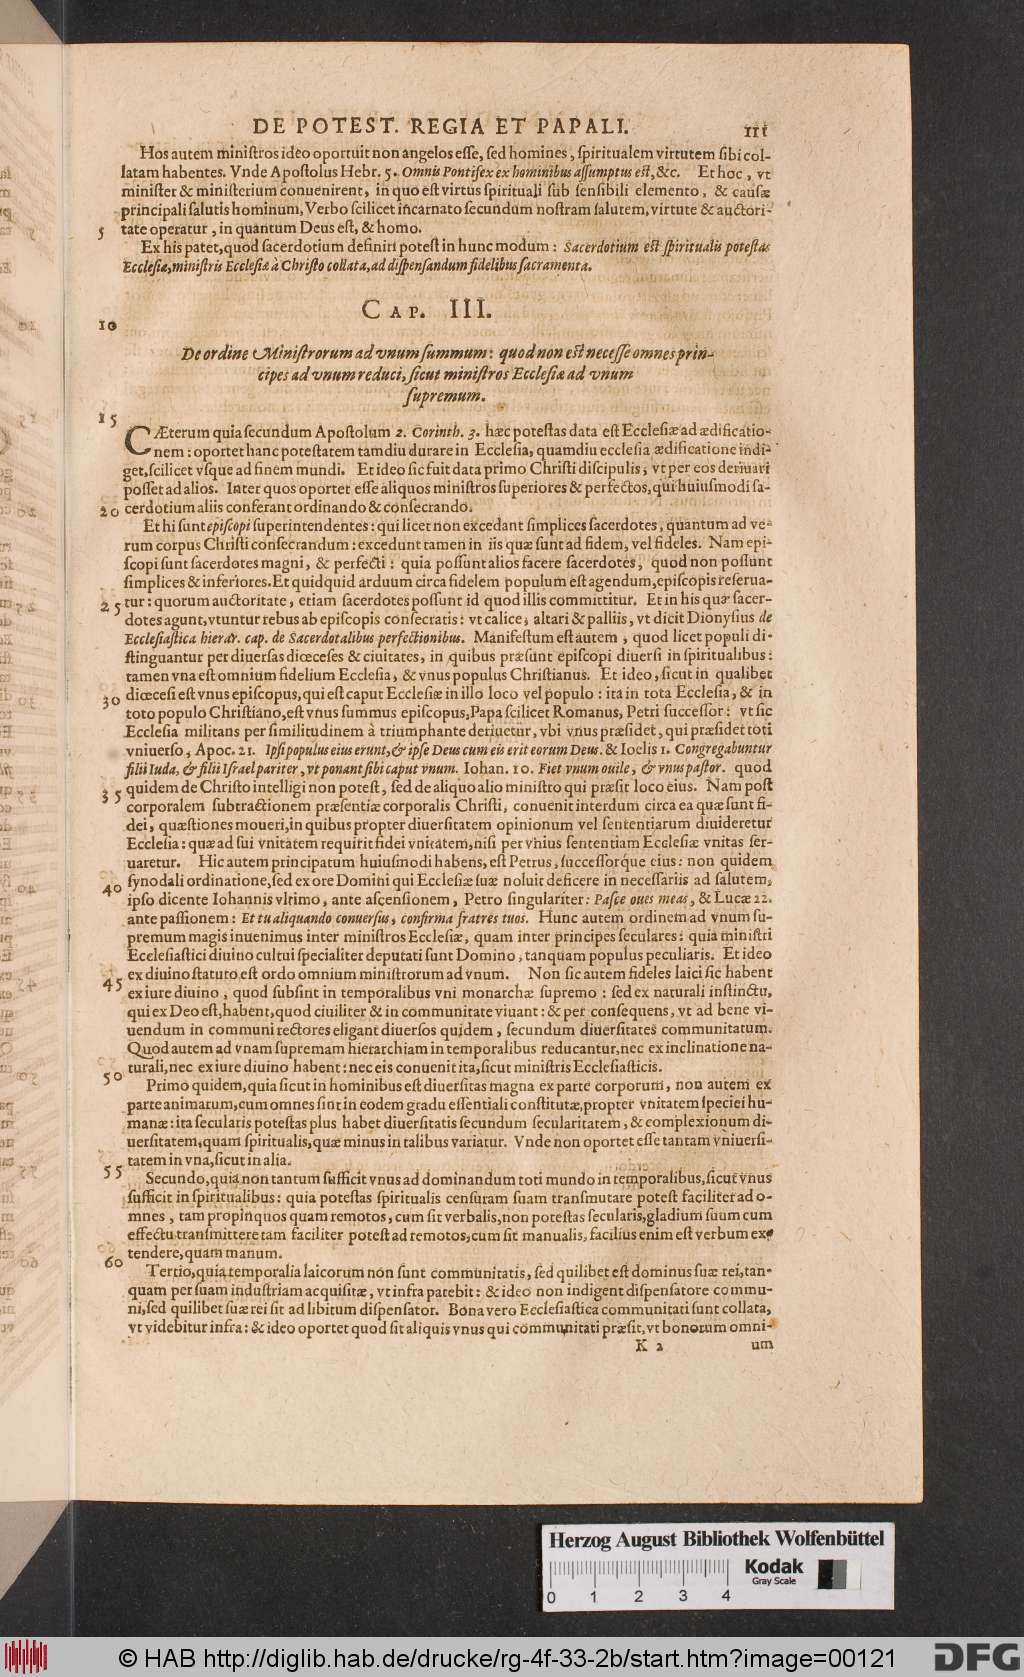 DE POTEST. REGIA ET PAPALI. 111
Hos autem ministros ideo oportuit non angelos esse, sed homines, spiritualem virtutem sibi col-
latam habentes. Vnde Apostolus Hebr. 5. Omnis Pontifex ex hominibus assumptus est, &c. Et hoc, vt
minister & ministerium conuenirent, in quo est virtus spirituali sub sensibili elemento, & causæ
principali salutis hominum, Verbo scilicet incarnato secundum nostram salutem, virtute & auctori-
5 tate operatur, in quantum Deus est, & homo.
Ex his patet, quod sacerdotium definiri potest in hunc modum: Sacerdotium est spiritualis potestas
Ecclesiæ, ministris Ecclesiæ à Christo collata, ad dispensandum fidelibus sacramenta.
CAP. III.
10
De ordine Ministrorum ad vnum summum: quod non est necesse omnes prin-
cipes ad vnum reduci, sicut ministros Ecclesiæ ad vnum
supremum.
15
CÆterum quia secundum Apostolum 2. Corinth. 3. hæc potestas data est Ecclesiæ ad ædificatio-
nem: oportet hanc potestatem tamdiu durare in Ecclesia, quamdiu ecclesia ædificatione indi-
get, scilicet vsque ad finem mundi. Et ideo sic fuit data primo Christi discipulis, vt per eos deriuari
posset ad alios. Inter quos oportet esse aliquos ministros superiores & perfectos, qui huiusmodi sa-
20 cerdotium aliis conferant ordinando & consecrando.
Et hi sunt episcopi superintendentes: qui licet non excedant simplices sacerdotes, quantum ad ve-
rum corpus Christi consecrandum: excedunt tamen in iis quæ sunt ad fidem, vel fideles. Nam epi-
scopi sunt sacerdotes magni, & perfecti: quia possunt alios facere sacerdotes, quod non possunt
simplices & inferiores. Et quidquid arduum circa fidelem populum est agendum, episcopis reserua-
25 tur: quorum auctoritate, etiam sacerdotes possunt id quod illis committitur. Et in his quæ sacer-
dotes agunt, vtuntur rebus ab episcopis consecratis: vt calice, altari & palliis, vt dicit Dionysius de
Ecclesiastica hierar. cap. de Sacerdotalibus perfectionibus. Manifestum est autem, quod licet populi di-
stinguantur per diuersas diœceses & ciuitates, in quibus præsunt episcopi diuersi in spiritualibus:
tamen vna est omnium fidelium Ecclesia, & vnus populus Christianus. Et ideo, sicut in qualibet
30 diœcesi est vnus episcopus, qui est caput Ecclesiæ in illo loco vel populo: ita in tota Ecclesia, & in
toto populo Christiano, est vnus summus episcopus, Papa scilicet Romanus, Petri successor: vt sic
Ecclesia militans per similitudinem à triumphante deriuetur, vbi vnus præsidet, qui præsidet toti
vniuerso, Apoc. 21. Ipsi populus eius erunt, & ipse Deus cum eis erit eorum Deus. & Ioelis 1. Congregabuntur
filii Iuda, & filii Israel pariter, vt ponant sibi caput vnum. Iohan. 10. Fiet vnum ouile, & vnus pastor. quod
35 quidem de Christo intelligi non potest, sed de aliquo alio ministro qui præsit loco eius. Nam post
corporalem subtractionem præsentiæ corporalis Christi, conuenit interdum circa ea quæ sunt fi-
dei, quæstiones moueri, in quibus propter diuersitatem opinionum vel sententiarum diuideretur
Ecclesia: quæ ad sui vnitatem requirit fidei vnitatem, nisi per vnius sententiam Ecclesiæ vnitas ser-
uaretur. Hic autem principatum huiusmodi habens, est Petrus, successorque eius: non quidem
40 synodali ordinatione, sed ex ore Domini qui Ecclesiæ suæ noluit deficere in necessariis ad salutem,
ipso dicente Iohannis vltimo, ante ascensionem, Petro singulariter: Pasce oues meas, & Lucæ 22.
ante passionem: Et tu aliquando conuersus, confirma fratres tuos. Hunc autem ordinem ad vnum su-
premum magis inuenimus inter ministros Ecclesiæ, quam inter principes seculares: quia ministri
Ecclesiastici diuino cultui specialiter deputati sunt Domino, tanquam populus peculiaris. Et ideo
ex diuino statuto, est ordo omnium ministrorum ad vnum. Non sic autem fideles laici sic habent
45 ex iure diuino, quod subsint in temporalibus vni monarchæ supremo: sed ex naturali instinctu,
qui ex Deo est, habent, quod ciuiliter & in communitate viuant: & per consequens, vt ad bene vi-
uendum in communi rectores eligant diuersos quidem, secundum diuersitates communitatum.
Quod autem ad vnam supremam hierarchiam in temporalibus reducantur, nec ex inclinatione na-
50 turali, nec ex iure diuino habent: nec eis conuenit ita, sicut ministris Ecclesiasticis.
Primo quidem, quia sicut in hominibus est diuersitas magna ex parte corporum, non autem ex
parte animarum, cum omnes sint in eodem gradu essentiali constitutæ, propter vnitatem speciei hu-
manæ: ita secularis potestas plus habet diuersitatis secundum secularitatem, & complexionum di-
uersitatem, quam spiritualis, quæ minus in talibus variatur. Vnde non oportet esse tantam vniuersi-
55 tatem in vna, sicut in alia.
Secundo, quia non tantum sufficit vnus ad dominandum toti mundo in temporalibus, sicut vnus
sufficit in spiritualibus: quia potestas spiritualis censuram suam transmutare potest faciliter ad o-
mnes, tam propinquos quam remotos, cum sit verbalis, non potestas secularis, gladium suum cum
effectu transmittere tam faciliter potest ad remotos, cum sit manualis, facilius enim est verbum ex-
60 tendere, quam manum.
Tertio, quia temporalia laicorum non sunt communitatis, sed quilibet est dominus suæ rei, tan-
quam per suam industriam acquisitæ, vt infra patebit: & ideo non indigent dispensatore commu-
ni, sed quilibet suæ rei sit ad libitum dispensator. Bona vero Ecclesiastica communitati sunt collata,
vt videbitur infra: & ideo oportet quod sit aliquis vnus qui communitati præsit, vt bonorum omni-
K 2 um
Herzog August Bibliothek Wolfenbüttel
Kodak
Gray Scale
0 1 2 3 4
© HAB http://diglib.hab.de/drucke/rg-4f-33-2b/start.htm?image=00121
DFG